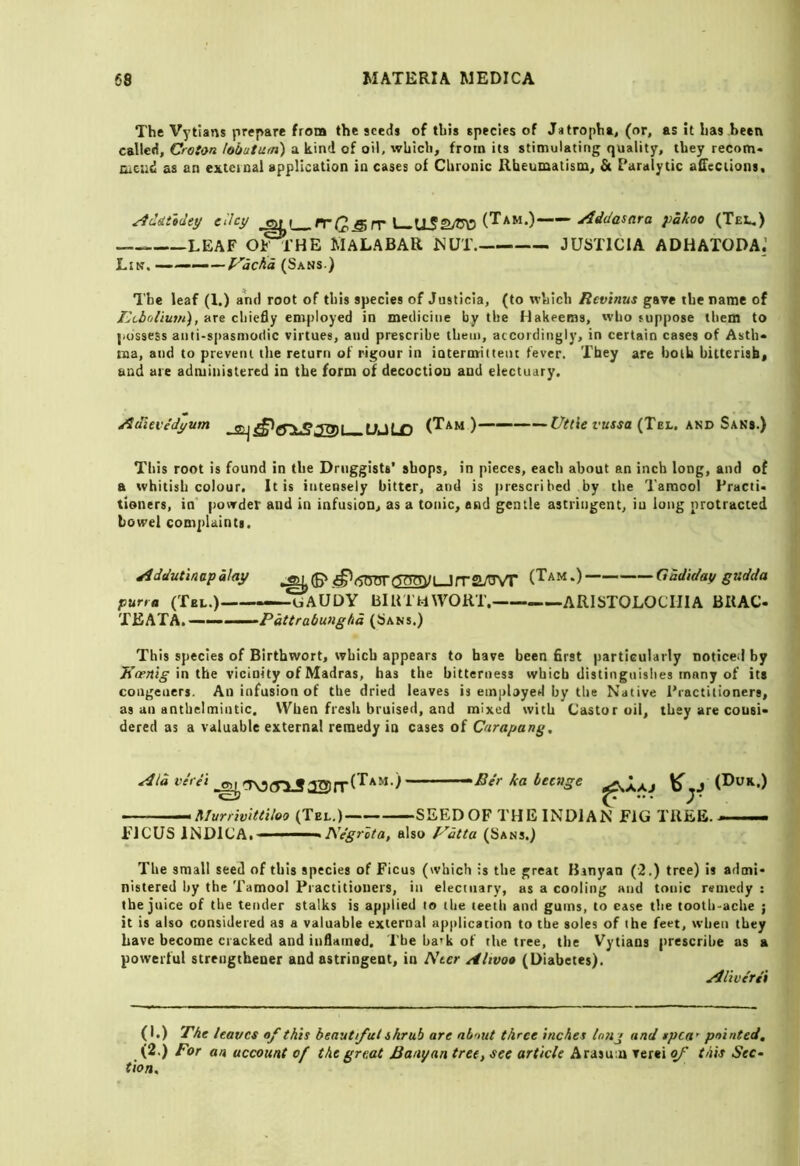 68 MATERIA MEDICA
The Vytians prepare from the seeds of this species of Jatropha, (or, as it has been
called, Croton lobatum) a kind of oil, which, from its stimulating quality, they recom-
mend as an external application in cases of Chronic Rheumatism, & Paralytic affections,
Addatodey eiley (Tam.)—— Addasara pākoo (Tel.)
———LEAF OF THE MALABAR NUT.———— JUSTICIA ADHATODA.
Lin. ————Vāchā (Sans.)
The leaf (1.) and root of this species of Justicia, (to which Revinus gave the name of
Ecbolium), are chiefly employed in medicine by the Hakeems, who suppose them to
possess anti-spasmodic virtues, and prescribe them, accordingly, in certain cases of Asth-
ma, and to prevent the return of rigour in intermittent fever. They are both bitterish,
and are administered in the form of decoction and electuary.
Adievedyum அதிவிடையம் (Tam )————Uttie vussa (Tel. and Sans.)
This root is found in the Druggists' shops, in pieces, each about an inch long, and of
a whitish colour. It is intensely bitter, and is prescribed by the Tamool Practi-
tioners, in powder and in infusion, as a tonic, and gentle astringent, in long protracted
bowel complaints.
Addutinapālay ஆடுதிண்ணாப்பாலை (Tam.)————Gādiday gudda
purra (Tel.)————GAUDY BIRTHWORT.————ARISTOLOCHIA BRAC-
TEATA.————Pāttrabunghā (Sans.)
This species of Birthwort, which appears to have been first particularly noticed by
Kœnig in the vicinity of Madras, has the bitterness which distinguishes many of its
congeners. An infusion of the dried leaves is employed by the Native Practitioners,
as an anthelmintic. When fresh bruised, and mixed with Castor oil, they are consi-
dered as a valuable external remedy in cases of Carapang.
Alā vereï ஆலவிரை (Tam.)————Bēr ka beenge (Duk.)
————Murrivittiloo (Tel.)————SEED OF THE INDIAN FIG TREE.————
FICUS INDICA.————Negrōta, also Vatta (Sans.)
The small seed of this species of Ficus (which is the great Banyan (2.) tree) is admi-
nistered by the Tamool Practitioners, in electuary, as a cooling and tonic remedy :
the juice of the tender stalks is applied to the teeth and gums, to ease the tooth-ache ;
it is also considered as a valuable external application to the soles of the feet, when they
have become cracked and inflamed. The bark of the tree, the Vytians prescribe as a
powerful strengthener and astringent, in Neer Alivoo (Diabetes).
Aliverii
(1.) The leaves of this beautiful shrub are about three inches long and spear pointed.
(2.) For an account of the great Banyan tree, see article Arasum verei of this Sec-
tion.